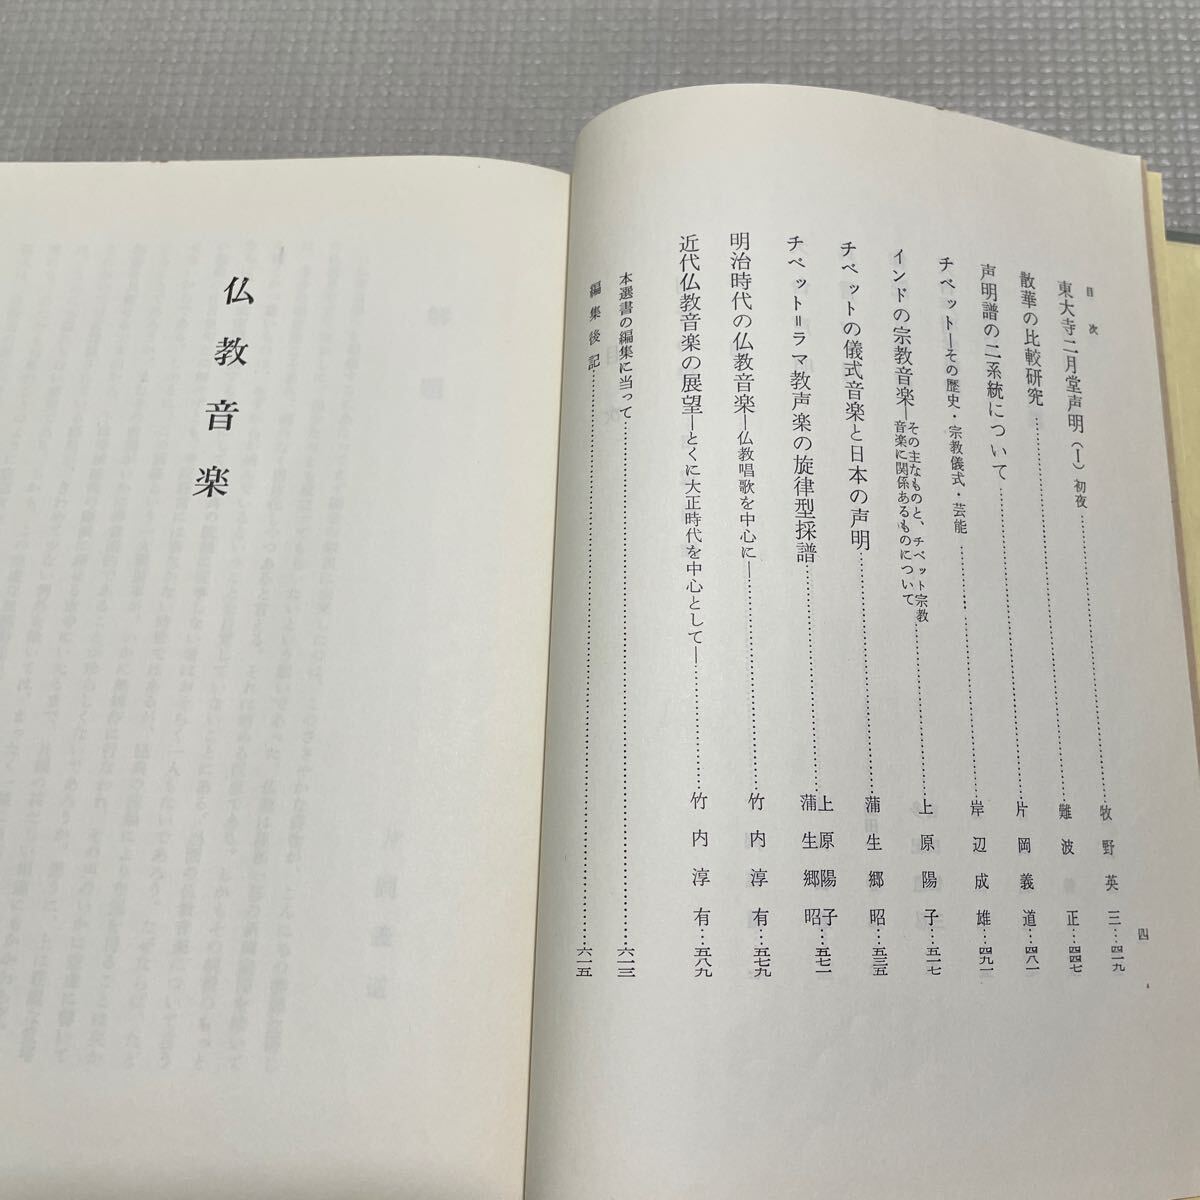 目次
四
東大寺二月堂声明(Ⅰ)初夜……牧野英三…四一九
散華の比較研究……難波 正…四四七
声明譜の二系統について……片岡義道…四八一
チベット―その歴史・宗教儀式・芸能……岸辺成雄…四九一
インドの宗教音楽―その主なものと、チベット宗教音楽に関係あるものについて……上原陽子…五一七
チベットの儀式音楽と日本の声明……蒲生郷昭…五三五
チベット＝ラマ教声楽の旋律型採譜……上原陽子 蒲生郷昭…五七一
明治時代の仏教音楽―仏教唱歌を中心に―……竹内淳有…五七九
近代仏教音楽の展望―とくに大正時代を中心として―……竹内淳有…五八九
本選書の編集に当って……六一三
編集後記……六一五
仏教音楽